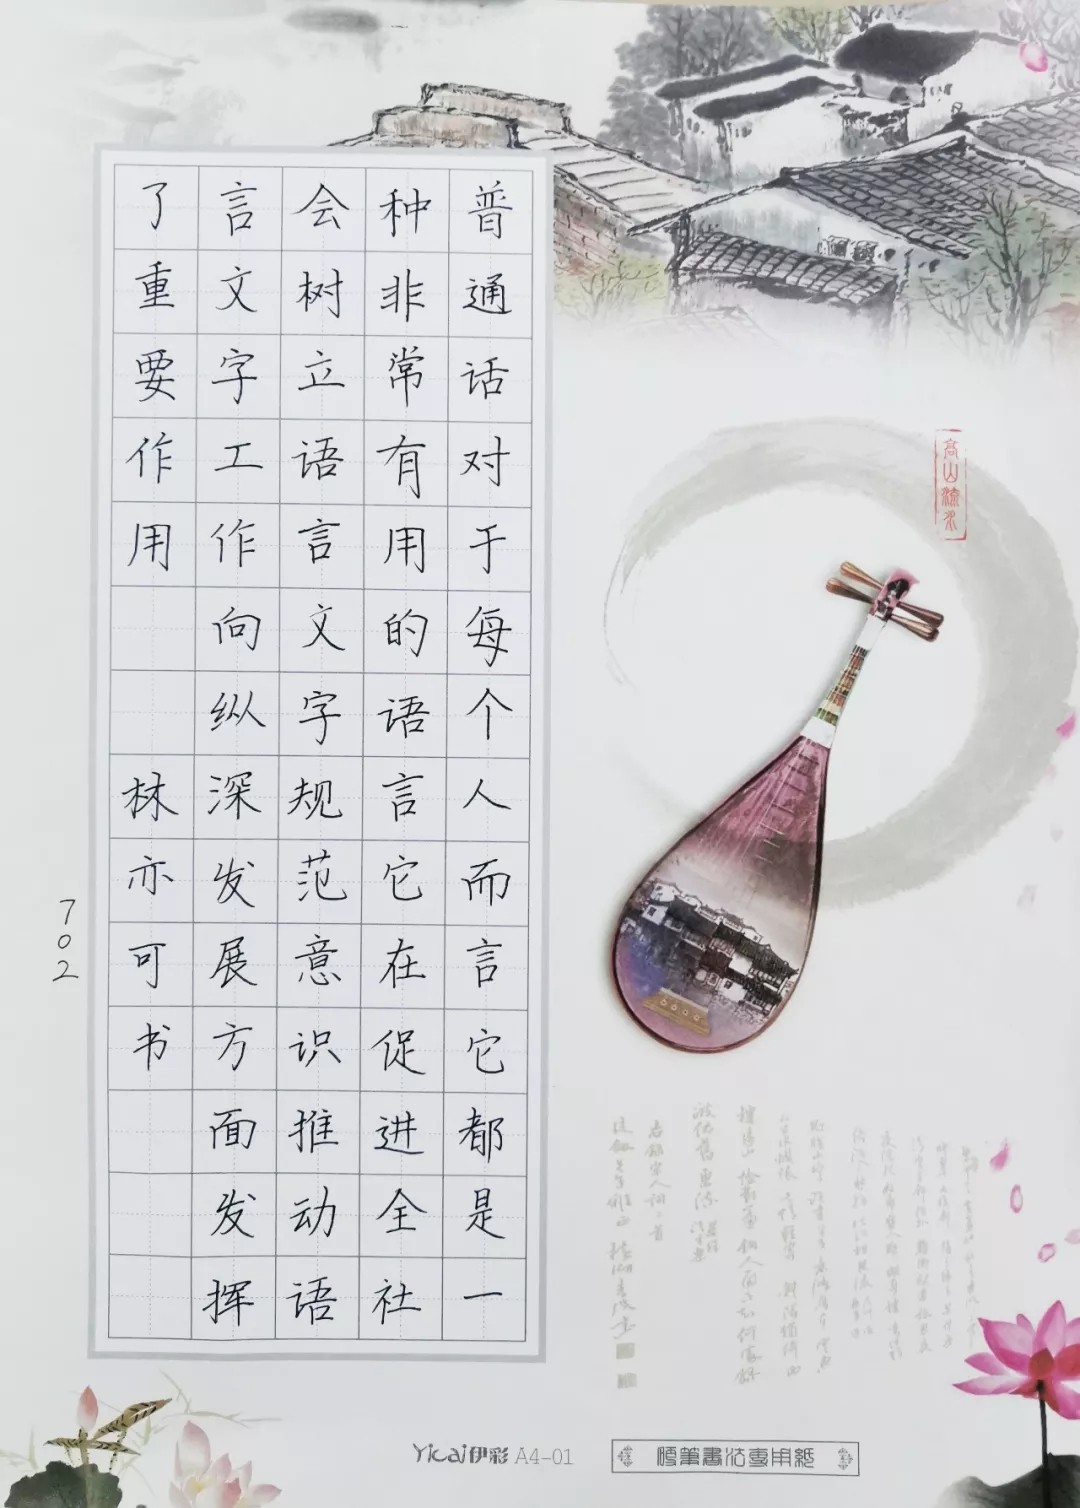 普通话对于每个人而言它都是一
种非常有用的语言它在促进全社
会树立语言文字规范意识推动语
言文字工作向纵深发展方面发挥
了重要作用 林亦可书
702
高山流水
Yicai伊彩 A4-01
硬笔书法专用纸